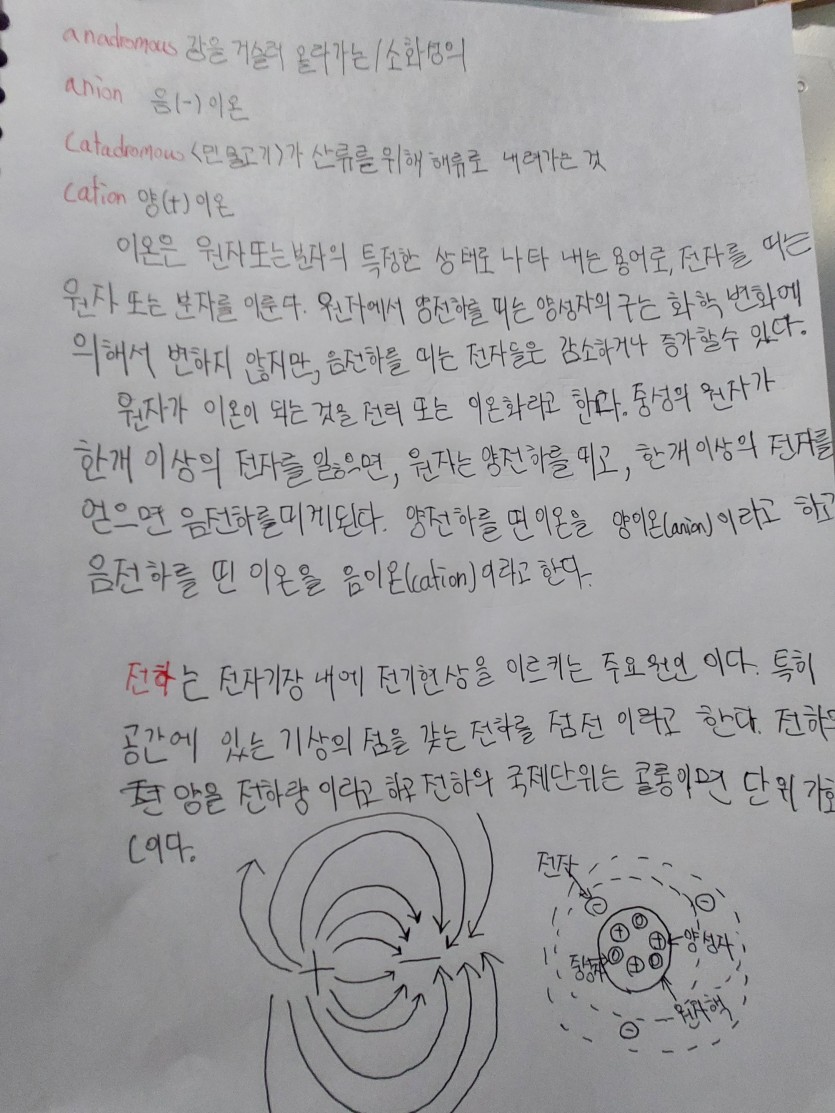 anadromous 강을 거슬러 올라가는/소화성의
anion 음(-)이온
Catadromous <민물고기>가 산류를 위해 해류로 내려가는 것
Cation 양(+)이온
이온은 원자또는분자의 특정한 상태로 나타 내는 용어로, 전자를 띠는
원자 또는 분자를 이룬다. 원자에서 양전하를 띠는 양성자의 구는 화학 변화에
의해서 변하지 않지만, 음전하를 띠는 전자들은 감소하거나 증가할수 있다.
원자가 이온이 되는 것을 전리 또는 이온화라고 한다. 중성의 원자가
한개 이상의 전자를 잃으면, 원자는 양전하를 띠고, 한개이상의 전자를
얻으면 음전하를띠게된다. 양전하를 띤이온을 양이온(anion)이라고 하고
음전하를 띤 이온을 음이온(cation)이라고한다.
전하는 전자기장 내에 전기현상을 이르키는 주요원인 이다. 특히
공간에 있는 기상의 점을 갖는 전하를 점전 이라고 한다. 전하의
양을 전하량 이라고 하고 전하의 국제단위는 쿨롱이며 단위 기호
C이다.
전자
+ −
양성자
중성자
원자핵